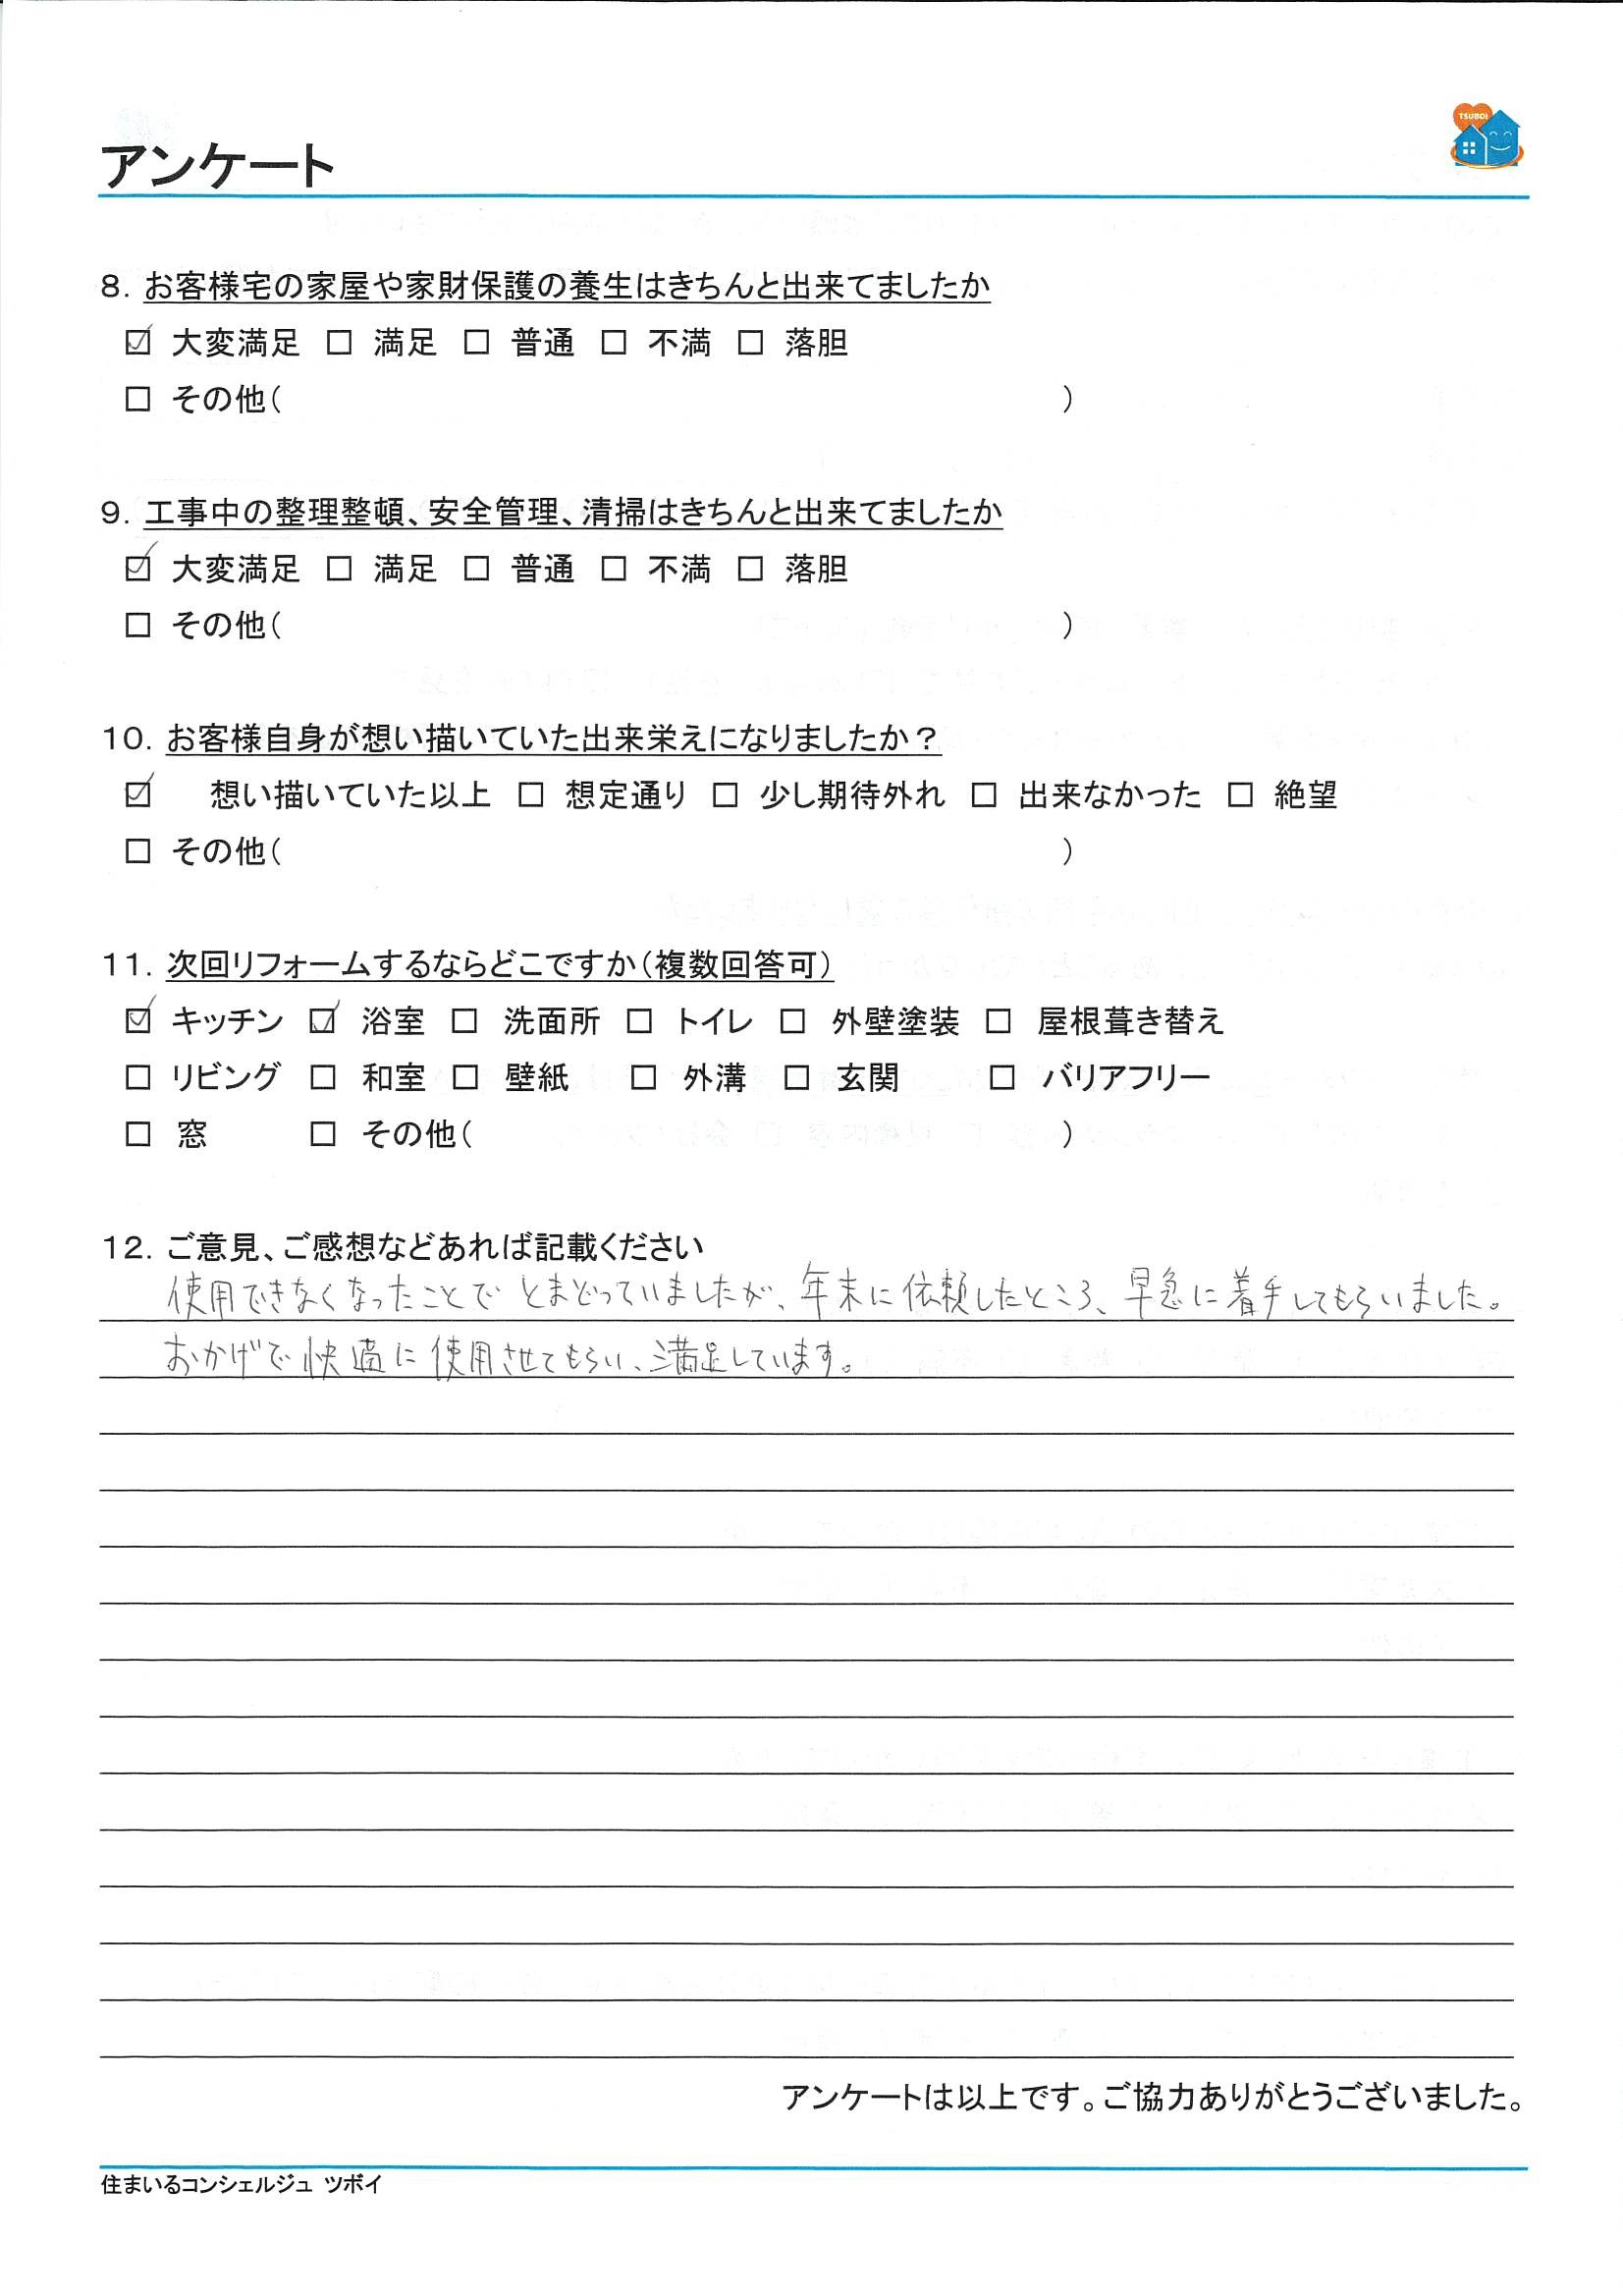 TSUBOI
アンケート
8. お客様宅の家屋や家財保護の養生はきちんと出来てましたか
☑ 大変満足 □ 満足 □ 普通 □ 不満 □ 落胆
□ その他( )
9. 工事中の整理整頓、安全管理、清掃はきちんと出来てましたか
☑ 大変満足 □ 満足 □ 普通 □ 不満 □ 落胆
□ その他( )
10. お客様自身が想い描いていた出来栄えになりましたか?
☑ 想い描いていた以上 □ 想定通り □ 少し期待外れ □ 出来なかった □ 絶望
□ その他( )
11. 次回リフォームするならどこですか(複数回答可)
☑ キッチン ☑ 浴室 □ 洗面所 □ トイレ □ 外壁塗装 □ 屋根葺き替え
□ リビング □ 和室 □ 壁紙 □ 外溝 □ 玄関 □ バリアフリー
□ 窓 □ その他( )
12. ご意見、ご感想などあれば記載ください
使用できなくなったことでとまどっていましたが、年末に依頼したところ、早急に着手してもらいました。
おかげで快適に使用させてもらい、満足しています。
アンケートは以上です。ご協力ありがとうございました。
住まいるコンシェルジュ ツボイ